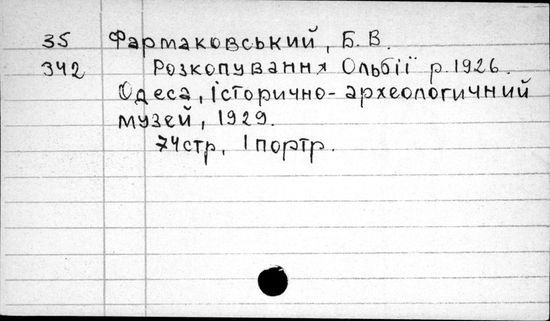 35 Фармаковський, Б. В.
342 Розкопування Ольбії р. 1926.
Одеса, історично-археологичний
музей, 1929.
74 стр, 1 портр.